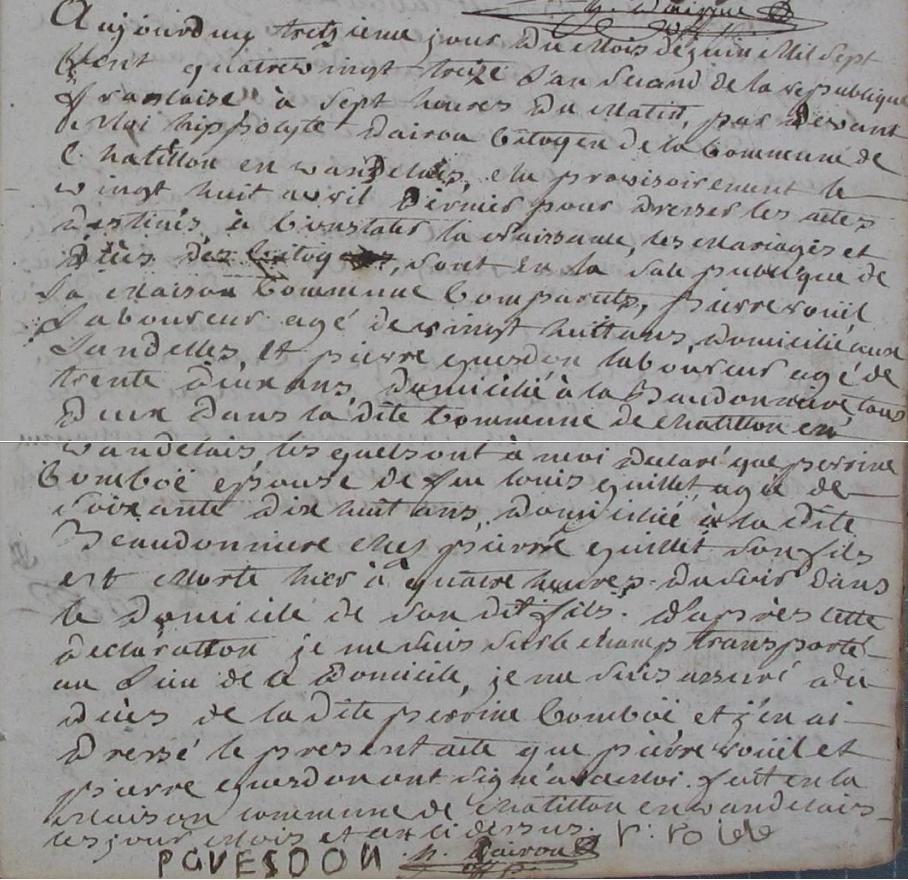 h. Dairou
Aujourdhuy treizieme jour du Mois de juin Mil Sept
Cent quatrewingt treize L'an Second de la republique
francaise à Sept heures Du Matin, par Devant
Moi hippolyte Dairou Citoyen de la Commune de
Chatillon en wandelais, elu provisoirement le
wingt huit avril Dernier pour Dresser les actes
Destinés à Constater la Naissance, les Mariages et
Décès des Citoy, sont en la Sale publique de
la Maison Commune Comparuts, pierre rouil
Laboureur agé de wingt huit ans, Domicilié aux
Landelles, et pierre guesdon laboureur agé de
trente Deux ans, Domicilié à la Baudonnière tous
Deux Dans la dite Commune de chatillon en
wandelais les quels ont à moi Declaré que perrine
Comboë epouse de feu louis guillet agée de
Soixante Dix huit ans, Domiciliée à la Dite
Beaudonniere chez pierre guillet Son fils
est Morte hier à quatre heures Du Soir Dans
le Domicile de Son dit fils. D'après cette
Déclaration je me Suis Sur le champ transporté
au Lieu de ce Domicile, je me Suis assuré du
Décès de la Dite perrine Comboë et j'en ai
Dressé le present acte que pierre rouil et
pierre guesdon ont Signé avec Moi. fait en la
Maison commune de Chatillon en wandelais
les jour Mois et an ci dessus.
PGVESDON h. Dairou